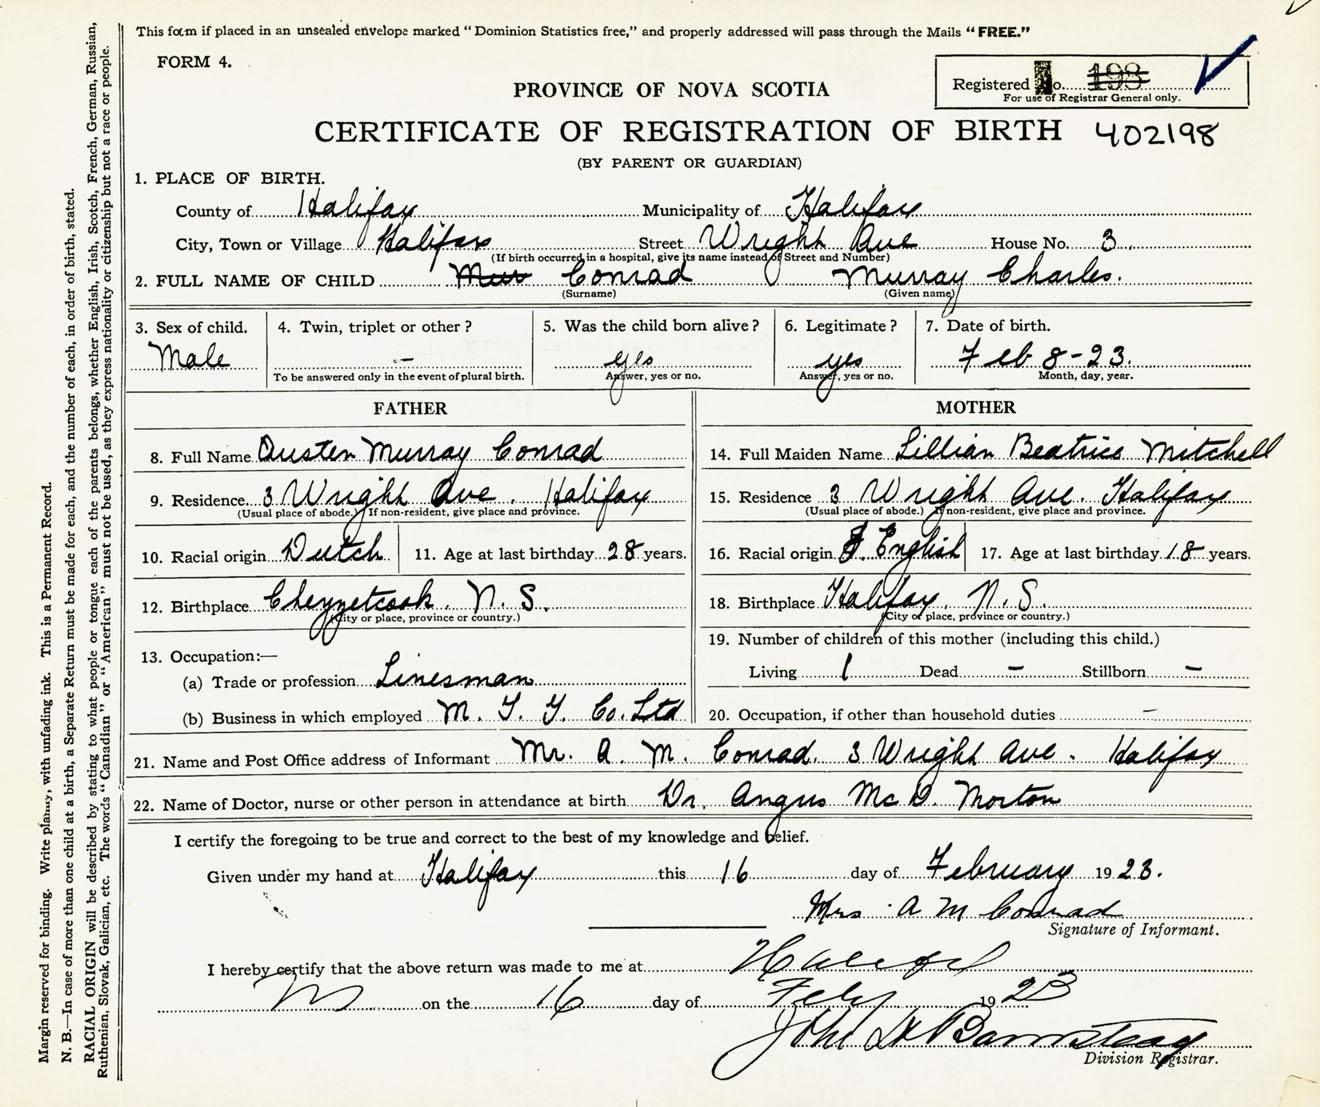 This form if placed in an unsealed envelope marked "Dominion Statistics free," and properly addressed will pass through the Mails "FREE."
FORM 4.
Registered No. 198
For use of Registrar General only.
PROVINCE OF NOVA SCOTIA
CERTIFICATE OF REGISTRATION OF BIRTH 402198
(BY PARENT OR GUARDIAN)
1. PLACE OF BIRTH.
County of Halifax Municipality of Halifax
City, Town or Village Halifax Street Wright Ave House No. 3.
(If birth occurred in a hospital, give its name instead of Street and Number)
2. FULL NAME OF CHILD Mur Conrad Murray Charles.
(Surname) (Given name)
3. Sex of child. 4. Twin, triplet or other? 5. Was the child born alive? 6. Legitimate? 7. Date of birth.
Male — yes yes Feb 8-23.
To be answered only in the event of plural birth. Answer, yes or no. Answer, yes or no. Month, day, year.
FATHER MOTHER
8. Full Name Austen Murray Conrad 14. Full Maiden Name Lillian Beatrice Mitchell
9. Residence 3 Wright Ave. Halifax 15. Residence 3 Wright Ave. Halifax
(Usual place of abode.) If non-resident, give place and province. (Usual place of abode.) If non-resident, give place and province.
10. Racial origin Dutch 11. Age at last birthday 28 years. 16. Racial origin English 17. Age at last birthday 18 years.
12. Birthplace Chezzetcook. N. S. 18. Birthplace Halifax. N. S.
(City or place, province or country.) (City or place, province or country.)
13. Occupation:— 19. Number of children of this mother (including this child.)
(a) Trade or profession Linesman Living 1 Dead — Stillborn —
(b) Business in which employed M. T. T. Co. Ltd 20. Occupation, if other than household duties —
21. Name and Post Office address of Informant Mr. A. M. Conrad. 3 Wright Ave. Halifax
22. Name of Doctor, nurse or other person in attendance at birth Dr. Angus Mc D. Morton
I certify the foregoing to be true and correct to the best of my knowledge and belief.
Given under my hand at Halifax this 16 day of February 1923.
Mrs A M Conrad
Signature of Informant.
I hereby certify that the above return was made to me at Halifax
NS on the 16 day of Feby 1923
John
Division Registrar.
Margin reserved for binding. Write plainly, with unfading ink. This is a Permanent Record.
N. B.—In case of more than one child at a birth, a Separate Return must be made for each, and the number of each, in order of birth, stated.
RACIAL ORIGIN will be described by stating to what people or tongue each of the parents belongs, whether English, Irish, Scotch, French, German, Russian,
Ruthenian, Slovak, Galician, etc. The words "Canadian" or "American" must not be used, as they express nationality or citizenship but not a race or people.